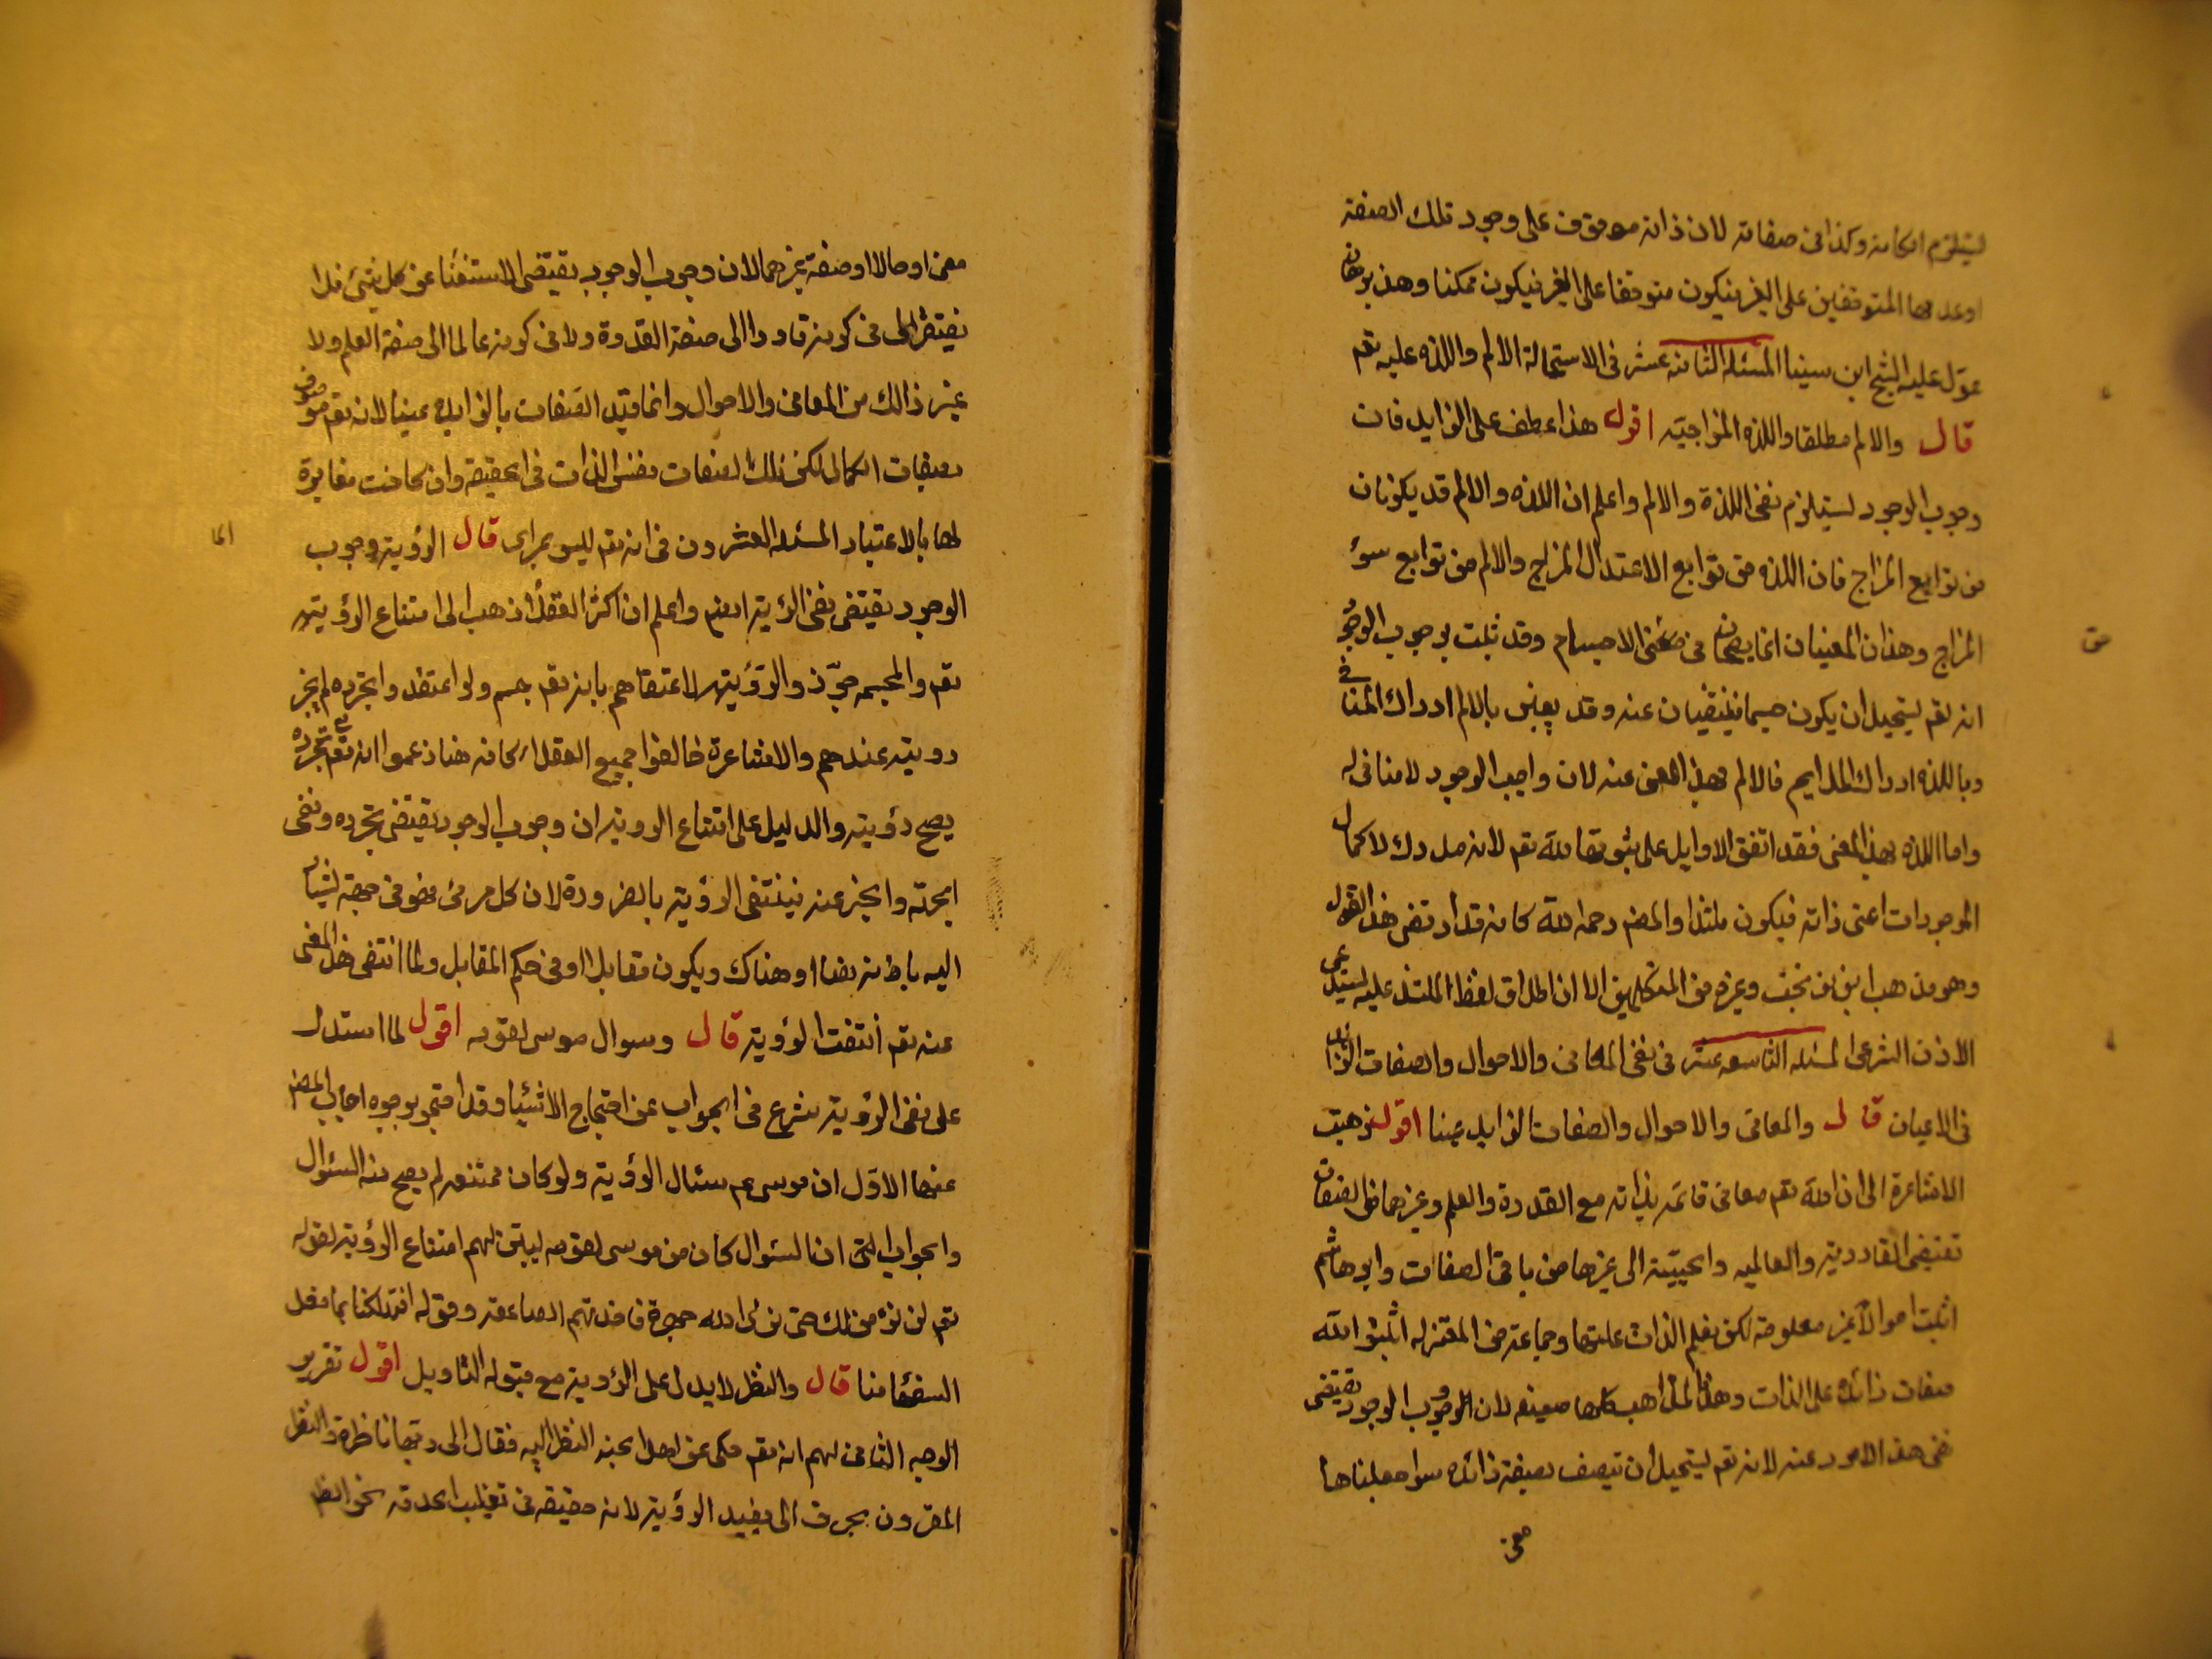 ليستلزم امكانه وكذا فى صفاته لان ذاته موقوف على وجود تلك الصفة
او عدمها المتوقفين على الغير فيكون متوقفا على الغير فيكون ممكنا وهذا برهان
عوّل عليه الشيخ ابن سينا المسئلة الثامنه عشر فى الاستحالة الالم واللذه عليه تقم
قال والالم مطلقا واللذه المزاجيّه اقول هذا عطف على الزايد فان
وجوب الوجود ليستلزم نفى اللذة والالم واعلم ان اللذه والالم قد يكونان
من توابع المزاج فان اللذه من توابع الاعتدال المزاج والالم من توابع سوء
المزاج وهذان المعنيان انما يصحان فى الاجسام وقد ثبت بوجوب الوجود
انه تقم يستحيل ان يكون جسما فينتفيان عنه وقد يعنى بالالم ادراك المنافى
وباللذه ادراك الملايم فالالم بهذا المعنى عنه لان واجب الوجود لا منافى له
واما اللذه بهذا المعنى فقد اتفق الاوايل على ثبوتها لله تقم لانه مدرك لاكمال
الموجودات اعنى ذاته فيكون ملتذا والمصنم رحمه الله كانه قد ارتضى هذا القول
وهو مذهب ابن نوبخت وغيره من المتكلمين الا ان اطلاق لفظ الملتذ عليه يستدعى
الاذن الشرعى المسئله التاسعه عشر فى نفى المعانى والاحوال والصفات الزائده
فى الاعيان قال والمعانى والاحوال والصفات الزايده عينا اقول ذهبت
الاشاعرة الى ان لله تقم معانى قائمه بذاته مع القدرة والعلم وغيرهما من الصفات
تقتضى القادرية والعالميه والحييّة الى غيرها من باقى الصفات وابو هاشم
اثبت احوالا غير معلومة لكن يعلم الذات عليها وجماعة من المعتزله اثبتوا لله
صفات زائده على الذات وهذه المذاهب كلها ضعيفه لان الوجوب الوجود يقتضى
نفى هذه الامور عنه لانه تقم يستحيل ان يتصف بصفة زائده سوا جعلناها
معنى
من
معنى او حالا او صفة غيرهما لان وجوب الوجوب يقتضى الاستغنا عن كل شئ فلا
يفتقر الى فى كونه قادرا الى صفة القدرة ولا فى كونه عالما الى صفة العلم ولا
غير ذالك من المعانى والاحوال وانما قيّد الصفات بالزايده عينا لانه تقم موصوف
بصفات الكمال لكن تلك الصفات نفس الذات فى الحقيقة وان كانت مغايرة
لها بالاعتبار المسئلة العشرون فى انه تقم ليس بمراى قال الرؤية وجوب
الوجود يقتضى نفى الرؤية ايضم واعلم ان اكثر العقلأ ذهب الى امتناع الرؤيته
تقم والمجسم جوّزوا الرؤيته لاعتقادهم بانه تقم جسم ولو اعتقدوا تجرده لم يجز
رويته عندهم والاشاعرة خالفوا جميع العقلا كافه هنا زعموا انه تقم مع تجرده
يصح رؤيته والدليل على امتناع الروية ان وجوب الوجود يقتضى تجرده ونفى
الجهة والحيز عنه فينتفى الرؤية بالضرورة لان كل مرئى فهو فى جهة يشار
اليه بانه هنا او هناك ويكون مقابلا او فى حكم المقابل ولما انتفى هذا المعنى
عنه تقم انتفت الرؤية قال وسوال موسى لقومه اقول لما استدل
على نفى الرؤية شرع فى الجواب عن احتجاج الاشيا وقد احتجو بوجوه اجاب المصنم
عنها الاوّل ان موسى عم سئال الرؤية ولو كان ممتنعه لم يصح منه السئوال
والجواب ان السئوال كان من موسى لقومه ليبيّن لهم امتناع الرؤية لقوله
تقم لن نؤمن لك حتى نرى الله جهرة فاخذتهم الصاعقة وقوله افتهلكنا بما فعل
السفهأ منا قال والنظر لا يدل على الرؤية مع قبوله التاويل اقول تقرير
الوجه الثانى لهم انه تقم حكى عن اهل الجنه النظر اليه فقال الى ربها ناظرة والنظر
المقرون بحرف الى يفيد الرؤية لانه حقيقه فى تقليب الحدقه نحو